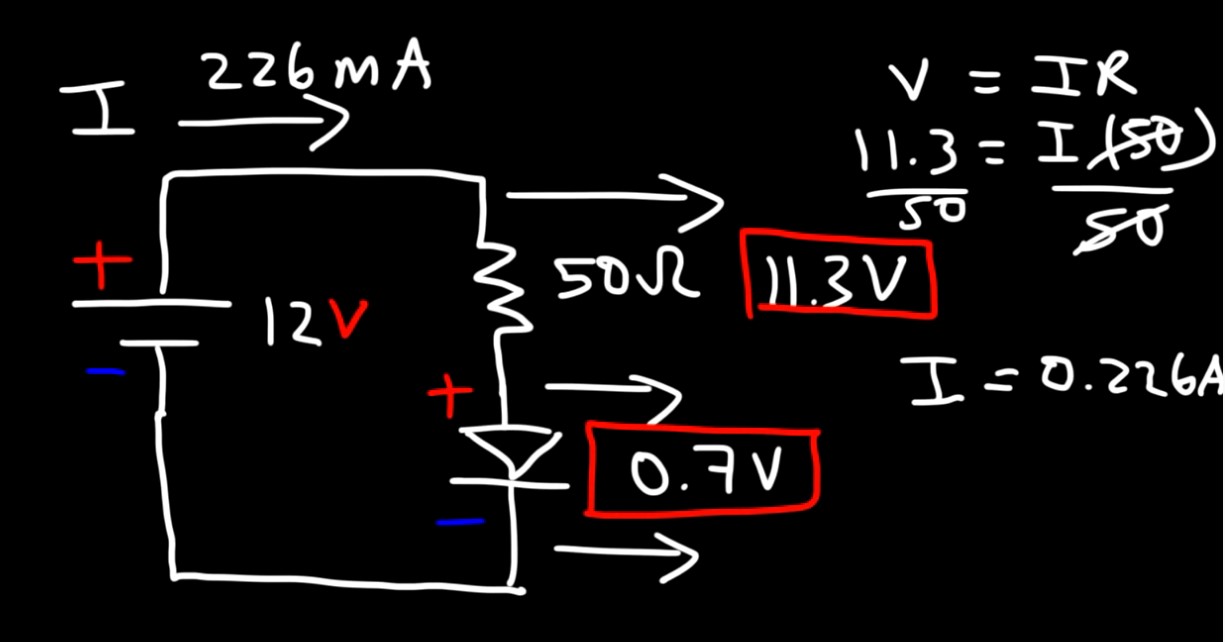 I 226 mA
+
12V
-
50Ω 11.3V
+
0.7V
-
V = IR
11.3 = I(50)
50 50
I = 0.226A